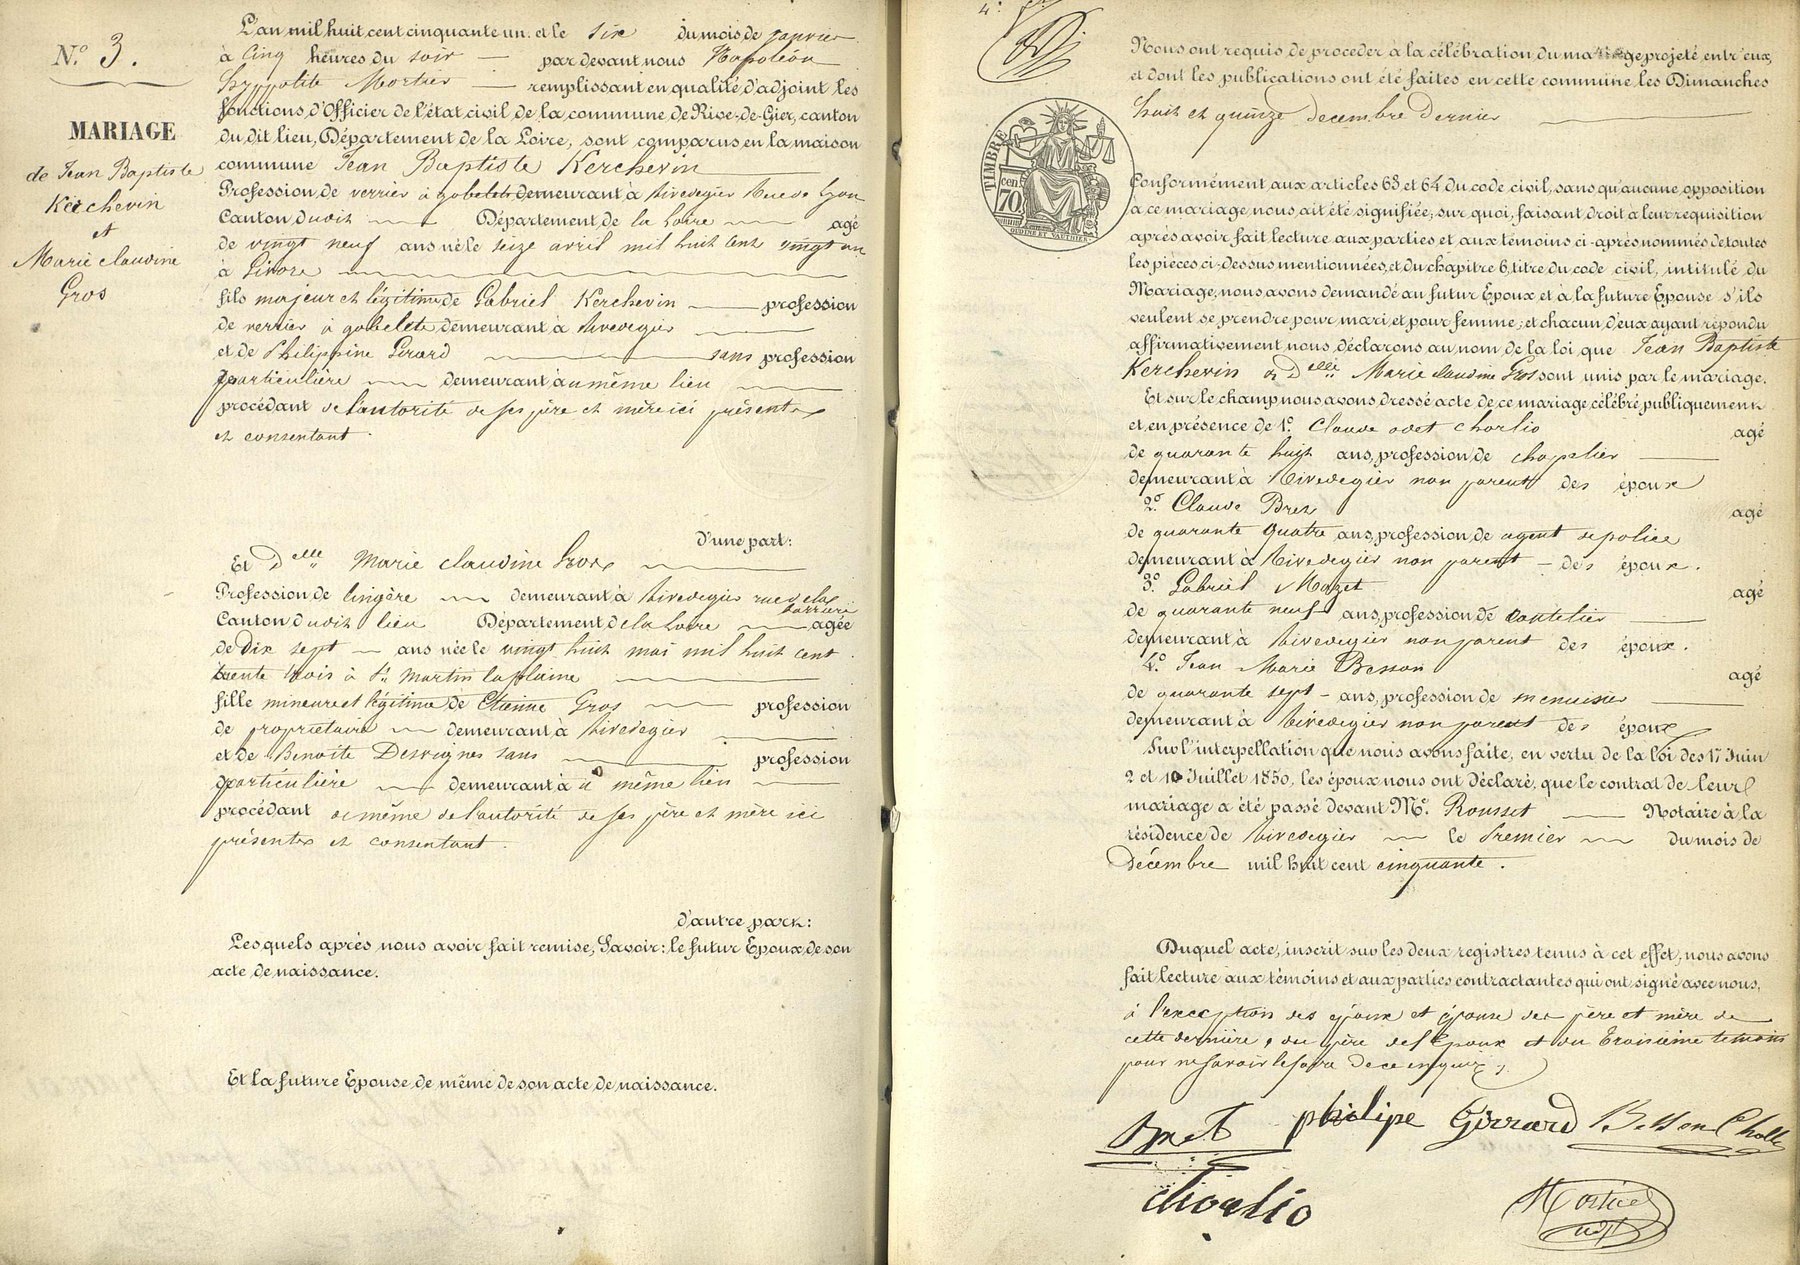 N.° 3.
MARIAGE
de Jean Baptiste
Kerchevin
et
Marie claudine
Gros
L'an mil huit cent cinquante un et le six du mois de janvier
à cinq heures du soir par devant nous Napoléon
hyppolite Mortier remplissant en qualité d'adjoint les
fonctions d'Officier de l'état civil de la commune de Rive-de-Gier, canton
du dit lieu, Département de la Loire, sont comparus en la maison
commune Jean Baptiste Kerchevin
Profession de verrier à gobelets demeurant à Rivedegier Rue de Lyon
Canton dudit Département de la Loire agé
de vingt neuf ans né le seize avril mil huit cent vingt un
à Givors
fils majeur et légitime de Gabriel Kerchevin profession
de verrier à gobelets demeurant à Rivedegier
et de Philippine Girard sans profession
particulière demeurant à u même lieu
procédant de l'autorité de ses père et mère ici présents
et consentant.
d'une part:
Et Delle Marie claudine Gros
Profession de lingère demeurant à Rivedegier rue de la
barrière
Canton dudit lieu Département de la Loire agée
de dix sept ans née le vingt huit mai mil huit cent
trente trois à St Martin la plaine
fille mineure et légitime de Etienne Gros profession
de propriétaire demeurant à Rivedegier
et de Benoite Desvignes sans profession
particulière demeurant à u même lieu
procédant de même de l'autorité de ses père et mère ici
présents et consentant.
d'autre part:
Lesquels après nous avoir fait remise, Savoir: le futur Epoux de son
acte de naissance.
Et la future Epouse de même de son acte de naissance.
4.e
TIMBRE
cen 70
OUDINE ET VAUTHIER
Nous ont requis de procéder à la célébration du mariage projeté entr'eux,
et dont les publications ont été faites en cette commune les Dimanches
huit et quinze decembre dernier
Conformément aux articles 63 et 64 du code civil, sans qu'aucune opposition
à ce mariage nous ait été signifiée; sur quoi, faisant droit à leur requisition
après avoir fait lecture aux parties et aux témoins ci-après nommés de toutes
les pièces ci-dessus mentionnées, et du chapitre 6, titre du code civil, intitulé du
Mariage, nous avons demandé au futur Epoux et à la future Epouse s'ils
veulent se prendre pour mari et pour femme; et chacun d'eux ayant répondu
affirmativement nous déclarons au nom de la loi que Jean Baptiste
Kerchevin & Delle Marie claudine Gros sont unis par le mariage.
Et sur le champ nous avons dressé acte de ce mariage célébré publiquement
et en présence de 1.° Claude odet chorlio agé
de quarante huit ans, profession de chapelier
demeurant à Rivedegier non parent des époux
2.° Claude Bret agé
de quarante quatre ans, profession de agent de police
demeurant à Rivedegier non parent des époux.
3.° Gabriel Mazet agé
de quarante neuf ans, profession de coutelier
demeurant à Rivedegier non parent des époux.
4.° Jean Marie Besson agé
de quarante sept ans, profession de menuisier
demeurant à Rivedegier non parent des époux
Sur l'interpellation que nous avons faite, en vertu de la loi des 17 Juin
2 et 10 Juillet 1850, les époux nous ont déclaré, que le contrat de leur
mariage a été passé devant M.e Rousset Notaire à la
résidence de Rivedegier le Premier du mois de
décembre mil huit cent cinquante.
Duquel acte, inscrit sur les deux registres tenus à cet effet, nous avons
fait lecture aux témoins et aux parties contractantes qui ont signé avec nous,
à l'exception des époux et épouse des père et mère de
cette dernière, du père de l'époux et du troisième témoin
pour ne savoir le faire de ce enquis.
Bret philipe Girrard Besson
chorlio
Mortier
adj